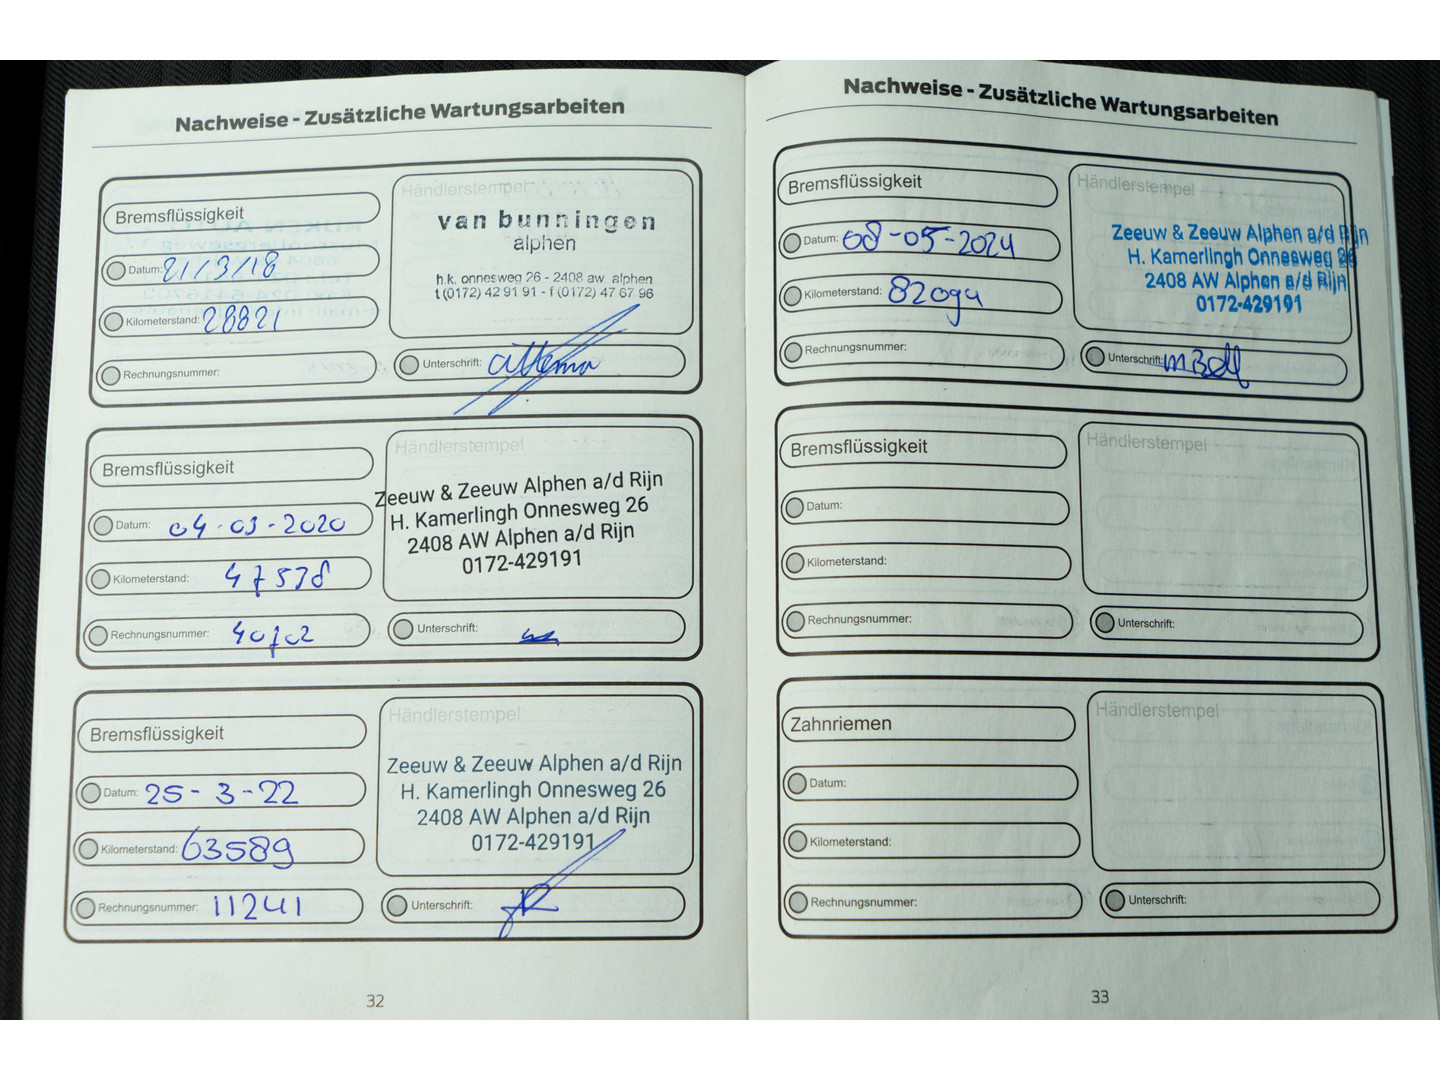 Nachweise - Zusätzliche Wartungsarbeiten
Bremsflüssigkeit
Datum: 21/3/18
Kilometerstand: 28821
Rechnungsnummer:
Händlerstempel
van bunningen
alphen
h.k. onnesweg 26 - 2408 aw alphen
t (0172) 42 91 91 - f (0172) 47 67 96
Unterschrift:
Bremsflüssigkeit
Datum: 04-03-2020
Kilometerstand: 47538
Rechnungsnummer: 40702
Händlerstempel
Zeeuw & Zeeuw Alphen a/d Rijn
H. Kamerlingh Onnesweg 26
2408 AW Alphen a/d Rijn
0172-429191
Unterschrift:
Bremsflüssigkeit
Datum: 25-3-22
Kilometerstand: 63589
Rechnungsnummer: 11241
Händlerstempel
Zeeuw & Zeeuw Alphen a/d Rijn
H. Kamerlingh Onnesweg 26
2408 AW Alphen a/d Rijn
0172-429191
Unterschrift:
32
Nachweise - Zusätzliche Wartungsarbeiten
Bremsflüssigkeit
Datum: 08-05-2024
Kilometerstand: 82094
Rechnungsnummer:
Händlerstempel
Zeeuw & Zeeuw Alphen a/d Rijn
H. Kamerlingh Onnesweg 26
2408 AW Alphen a/d Rijn
0172-429191
Unterschrift:
Bremsflüssigkeit
Datum:
Kilometerstand:
Rechnungsnummer:
Händlerstempel
Unterschrift:
Zahnriemen
Datum:
Kilometerstand:
Rechnungsnummer:
Händlerstempel
Unterschrift:
33